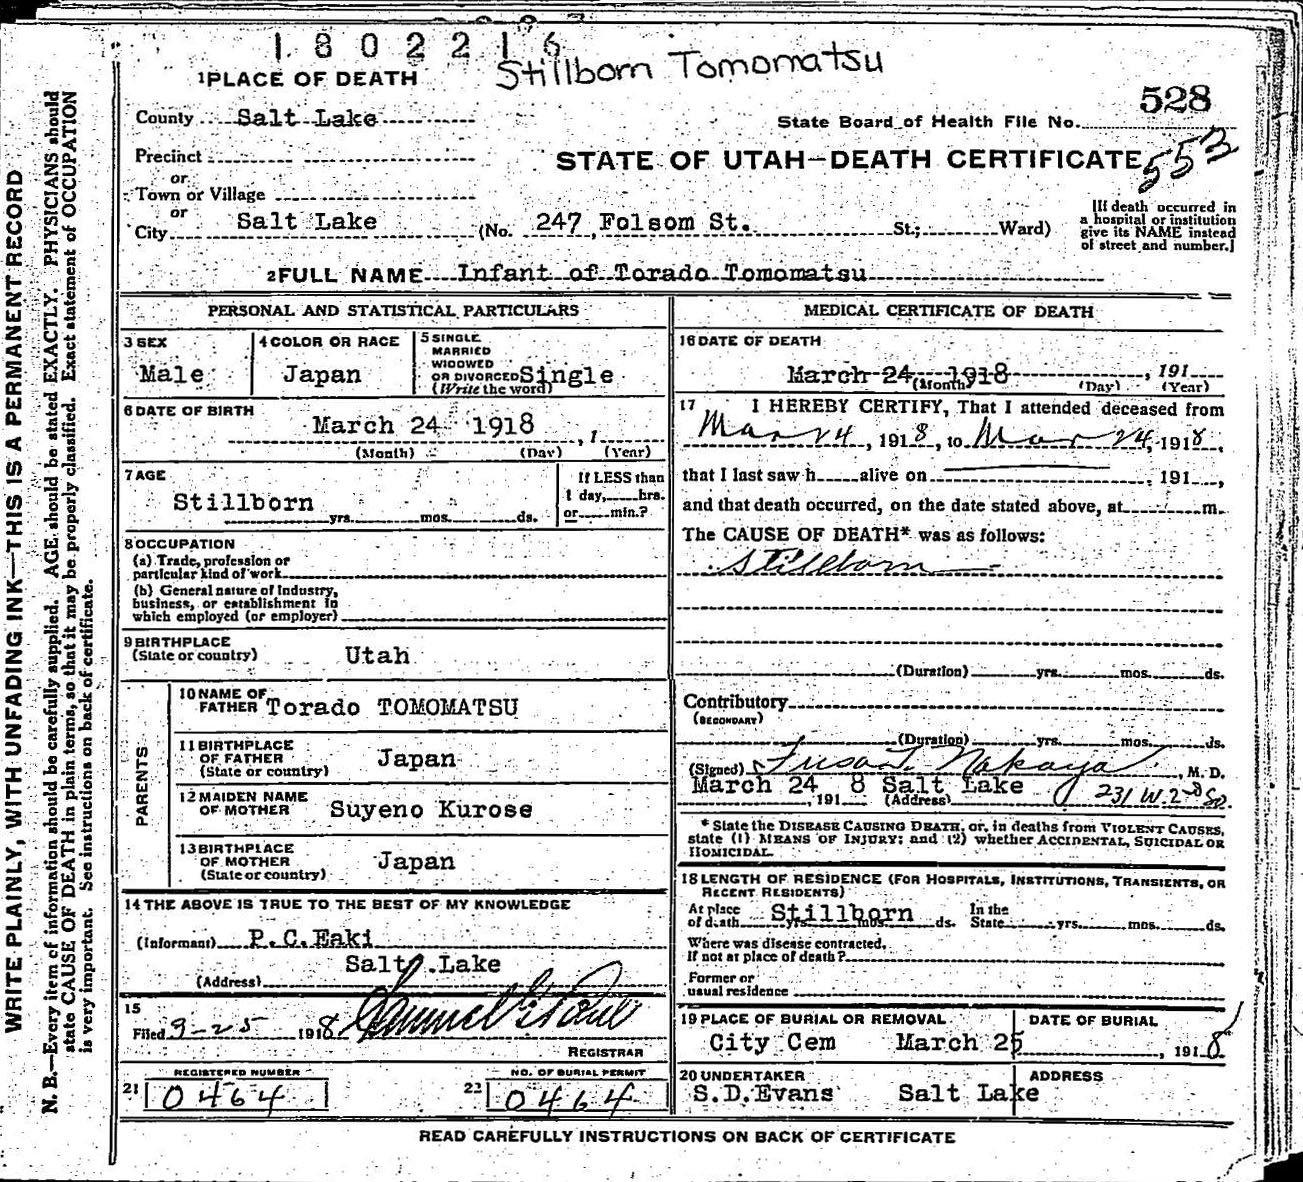 1802216
Stillborn Tomomatsu
1 PLACE OF DEATH
528
County Salt Lake
State Board of Health File No.
Precinct
STATE OF UTAH—DEATH CERTIFICATE
553
or
Town or Village
or
City Salt Lake (No. 247 Folsom St. St.; Ward)
[If death occurred in
a hospital or institution
give its NAME instead
of street and number.]
2 FULL NAME Infant of Torado Tomomatsu
PERSONAL AND STATISTICAL PARTICULARS
3 SEX
Male
4 COLOR OR RACE
Japan
5 SINGLE
MARRIED
WIDOWED
OR DIVORCED Single
(Write the word)
6 DATE OF BIRTH
March 24 1918 , 1
(Month) (Day) (Year)
7 AGE
Stillborn
yrs. mos. ds.
If LESS than
1 day, hrs.
or min.?
8 OCCUPATION
(a) Trade, profession or
particular kind of work
(b) General nature of Industry,
business, or establishment in
which employed (or employer)
9 BIRTHPLACE
(State or country) Utah
PARENTS
10 NAME OF
FATHER Torado TOMOMATSU
11 BIRTHPLACE
OF FATHER
(State or country) Japan
12 MAIDEN NAME
OF MOTHER Suyeno Kurose
13 BIRTHPLACE
OF MOTHER
(State or country) Japan
14 THE ABOVE IS TRUE TO THE BEST OF MY KNOWLEDGE
(Informant) P.C.Eaki
Salt Lake
(Address)
15
Filed 3-25 1918 Samuel G. Paul
REGISTRAR
REGISTERED NUMBER
21 0464
NO. OF BURIAL PERMIT
22 0464
MEDICAL CERTIFICATE OF DEATH
16 DATE OF DEATH
March 24 1918 , 191
(Month) (Day) (Year)
17 I HEREBY CERTIFY, That I attended deceased from
Mar 24, 1918, to Mar 24, 1918,
that I last saw h alive on , 191 ,
and that death occurred, on the date stated above, at m.
The CAUSE OF DEATH* was as follows:
Stillborn
(Duration) yrs. mos. ds.
Contributory
(SECONDARY)
(Duration) yrs. mos. ds.
(Signed) Nakaya , M. D.
March 24 , 191 8 Salt Lake 231 W. 2nd So.
(Address)
* State the DISEASE CAUSING DEATH, or, in deaths from VIOLENT CAUSES,
state (1) MEANS OF INJURY; and (2) whether ACCIDENTAL, SUICIDAL OR
HOMICIDAL.
18 LENGTH OF RESIDENCE (FOR HOSPITALS, INSTITUTIONS, TRANSIENTS, OR
RECENT RESIDENTS)
At place
of death Stillborn yrs. mos. ds.
In the
State yrs. mos. ds.
Where was disease contracted,
If not at place of death?
Former or
usual residence
19 PLACE OF BURIAL OR REMOVAL
City Cem
DATE OF BURIAL
March 25 , 1918
20 UNDERTAKER
S.D.Evans
ADDRESS
Salt Lake
READ CAREFULLY INSTRUCTIONS ON BACK OF CERTIFICATE
WRITE PLAINLY, WITH UNFADING INK—THIS IS A PERMANENT RECORD
N. B.—Every item of information should be carefully supplied. AGE should be stated EXACTLY. PHYSICIANS should
state CAUSE OF DEATH in plain terms, so that it may be properly classified. Exact statement of OCCUPATION
is very important. See instructions on back of certificate.